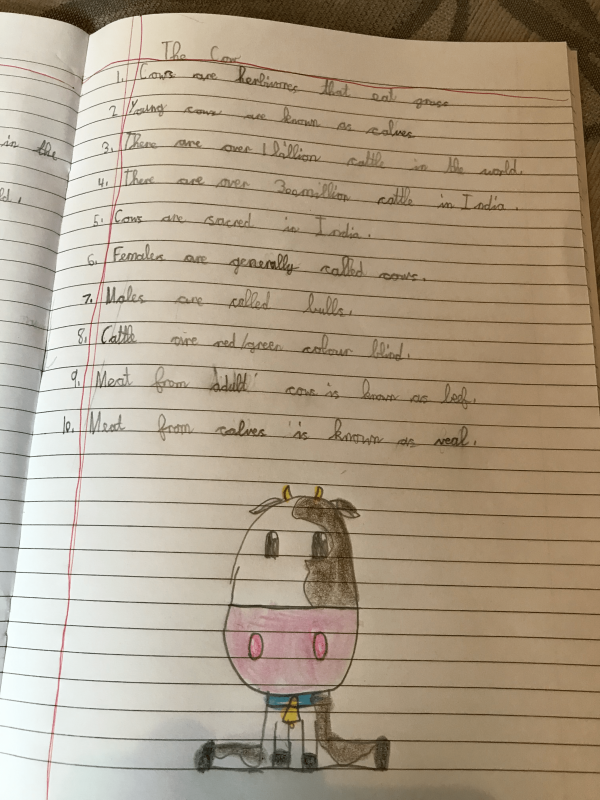 in the
ld.
The Cow
1. Cows are herbivores that eat grass
2 Young cows are known as calves
3. There are over 1 billion cattle in the world.
4. There are over 300 million cattle in India.
5. Cows are sacred in India.
6. Females are generally called cows.
7. Males are called bulls.
8. Cattle are red/green colour blind.
9. Meat from adult cow is known as beef.
10. Meat from calves is known as veal.